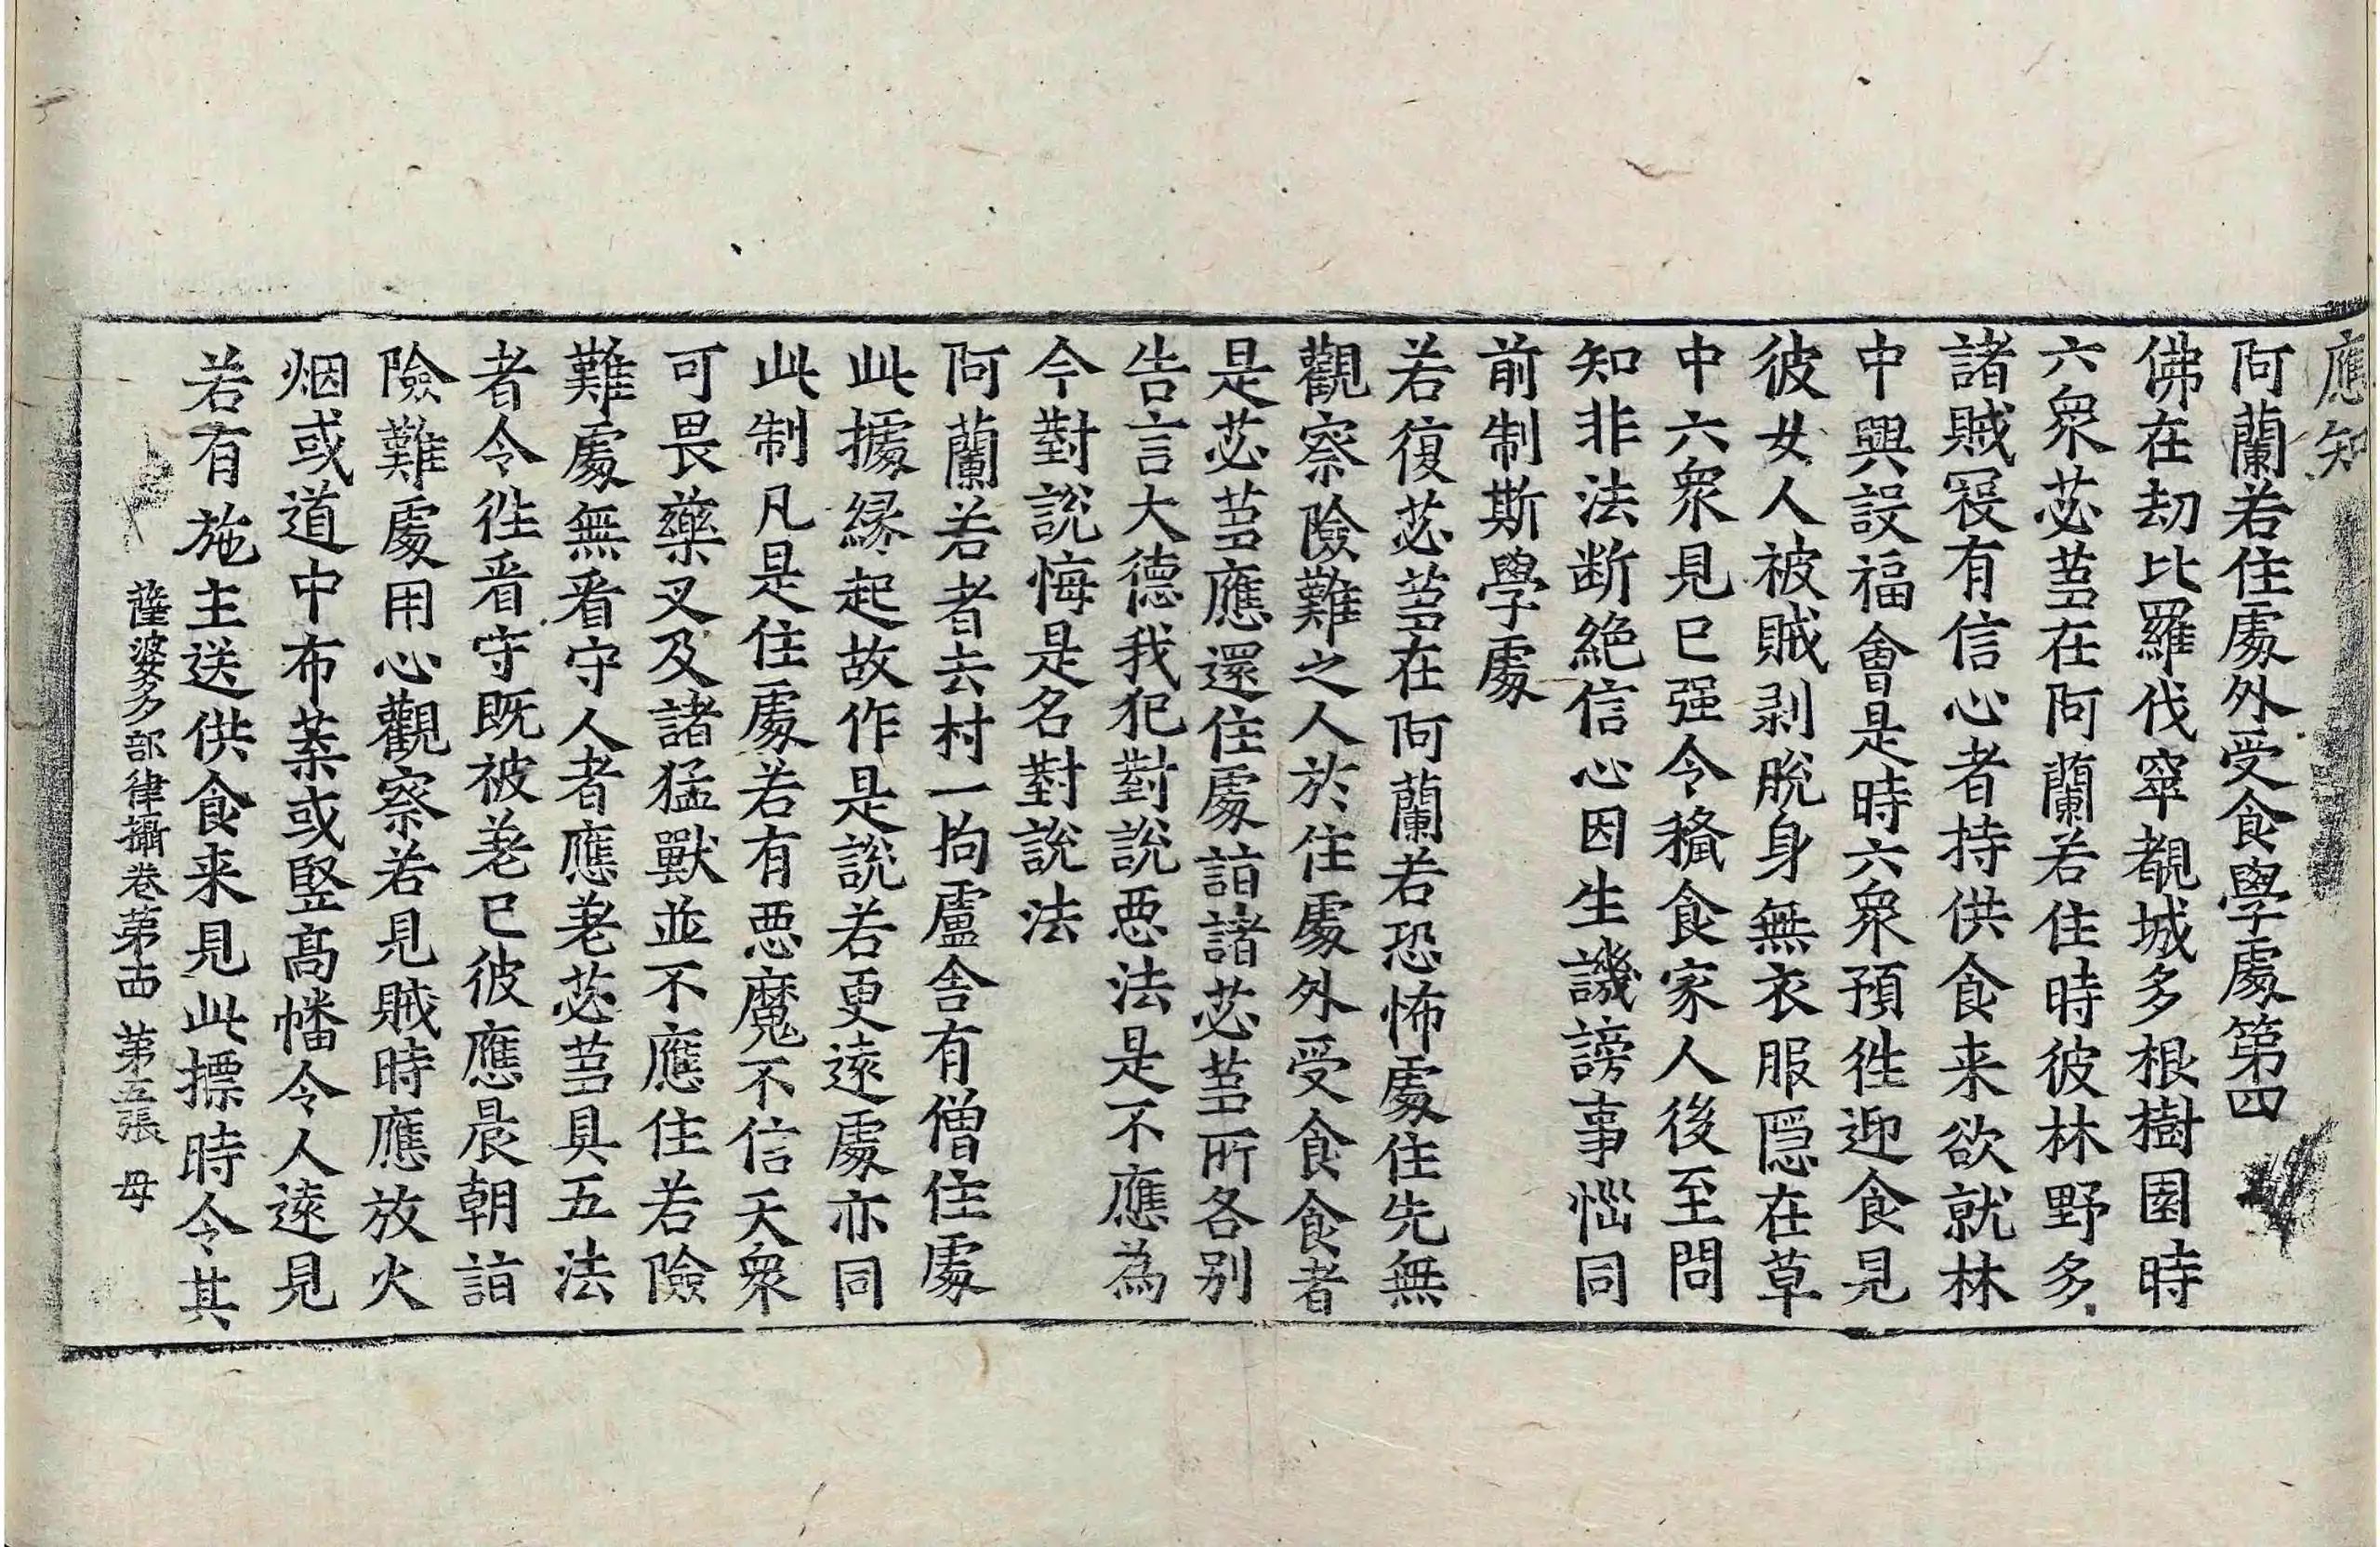 應知
阿蘭若住處外受食學處第四
佛在劫比羅伐窣覩城多根樹園時
六衆苾芻在阿蘭若住時彼林野多
諸賊寇有信心者持供食来欲就林
中興設福會是時六衆預徃迎食見
彼女人被賊剥脫身無衣服隱在草
中六衆見已强令授食家人後至問
知非法断絶信心因生譏謗事惱同
前制斯學處
若復苾芻在阿蘭若恐怖處住先無
觀察險難之人於住處外受食食者
是苾芻應還住處詣諸苾芻所各別
告言大德我犯對說惡法是不應為
今對說悔是名對說法
阿蘭若者去村一拘盧舍有僧住處
此據緣起故作是說若更遠處亦同
此制凡是住處若有惡魔不信天衆
可畏藥叉及諸猛獸並不應住若險
難處無看守人者應差苾芻具五法
者令徃看守旣被差已彼應晨朝詣
險難處用心觀察若見賊時應放火
烟或道中布葉或竪高幡令人遠見
若有施主送供食来見此摽時令其
薩婆多部律攝卷第十四 第五張 母